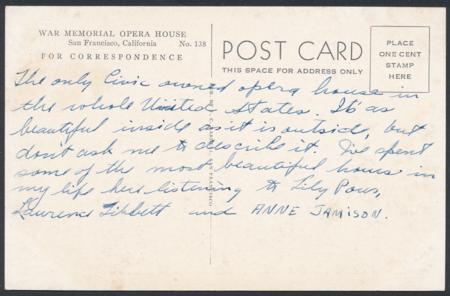 WAR MEMORIAL OPERA HOUSE
San Francisco, California No. 138
FOR CORRESPONDENCE
POST CARD
THIS SPACE FOR ADDRESS ONLY
PLACE
ONE CENT
STAMP
HERE
The only Civic owned opera house in
the whole United States. It's as
beautiful inside as it is outside, but
dont ask me to describe it. I've spent
some of the most beautiful hours in
my life here listening to Lily Pons,
Lawrence Tibbett and ANNE JAMISON.